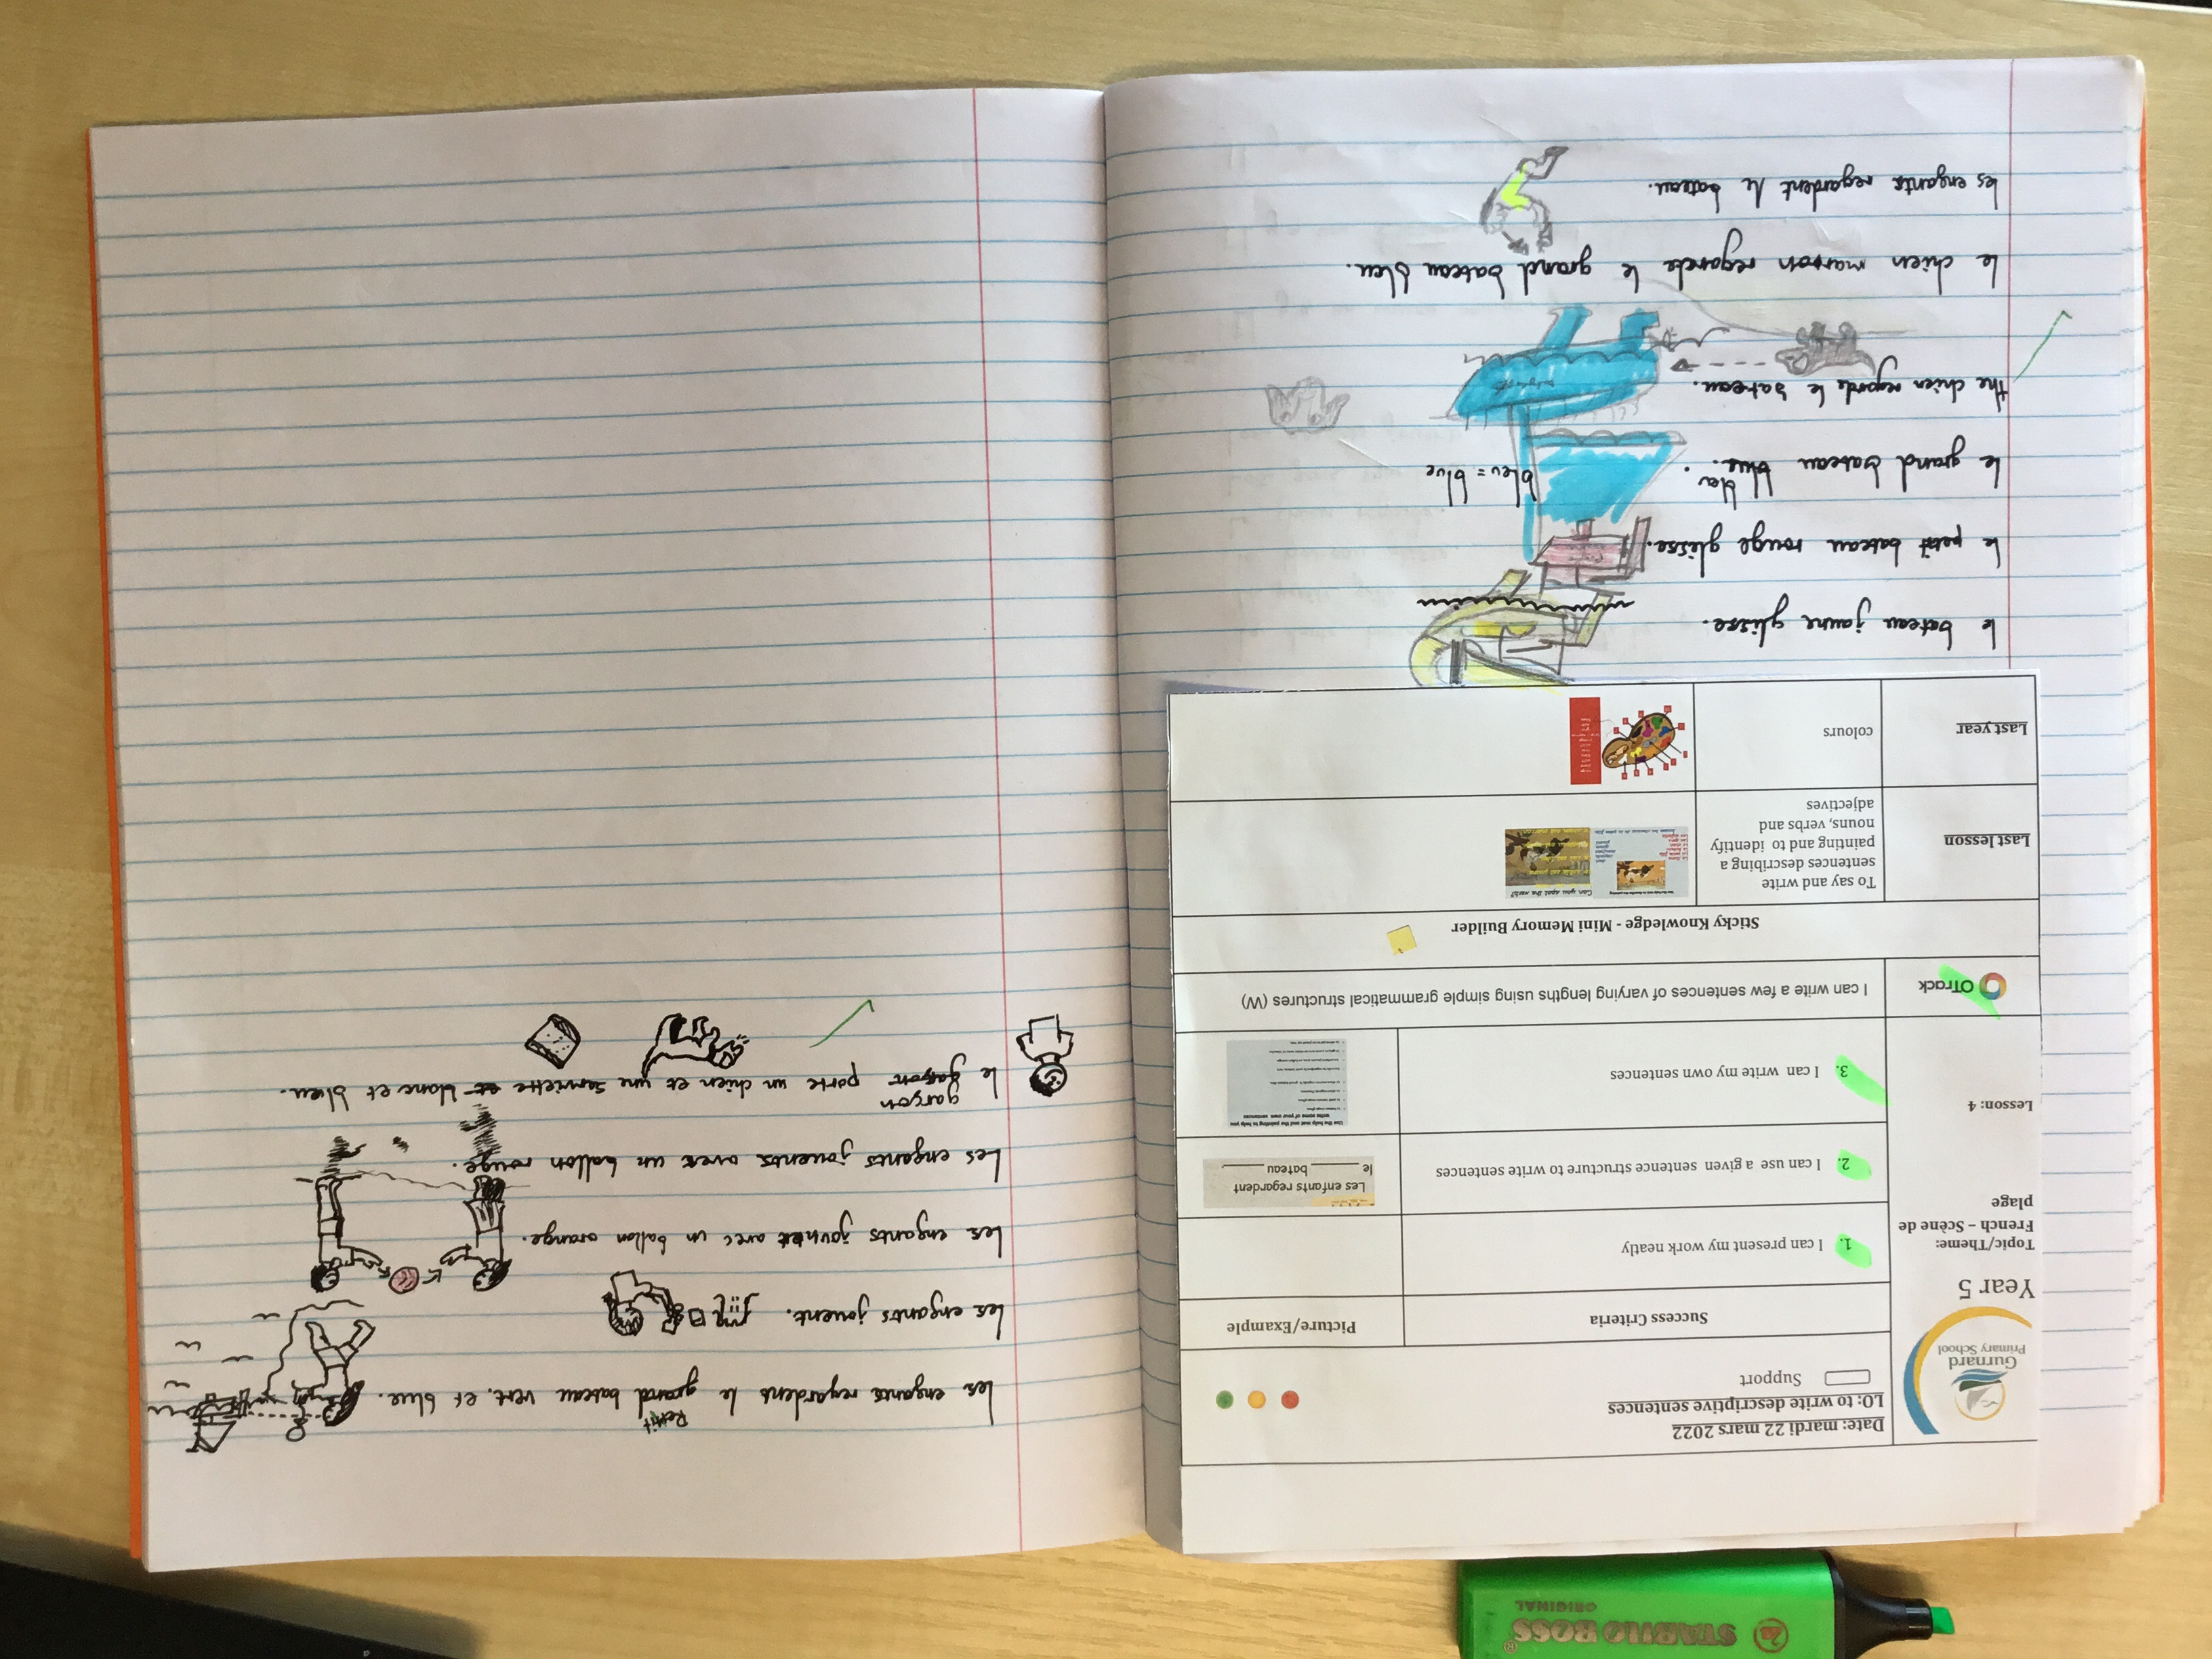 Gurnard
Primary School
Year 5
Topic/Theme:
French – Scène de
plage
Lesson: 4
Date: mardi 22 mars 2022
LO: to write descriptive sentences
Support
Success Criteria
Picture/Example
1. I can present my work neatly
2. I can use a given sentence structure to write sentences
Les enfants regardent
le ______ bateau ______.
3. I can write my own sentences
Use the help mat and the painting to help you
write some of your own sentences
OTrack
I can write a few sentences of varying lengths using simple grammatical structures (W)
Sticky Knowledge - Mini Memory Builder
Last lesson
To say and write
sentences describing a
painting and to identify
nouns, verbs and
adjectives
Can you spot the verb?
Last year
colours
le bateau jaune glisse.
le petit bateau rouge glisse.
le grand bateau blue.
bleu
bleu = blue
the chien regarde le bateau.
le chien marron regarde le grand bateau bleu.
les enfants regardent le bateau.
Les enfants regardent le grand bateau vert et blue.
Petit
Les enfants jouent.
Les enfants jouent avec un ballon orange.
Les enfants jouents avec un ballon rouge.
le garçon porte un chien et une serviette et blanc et bleu.
garçon
STABILO BOSS®
ORIGINAL